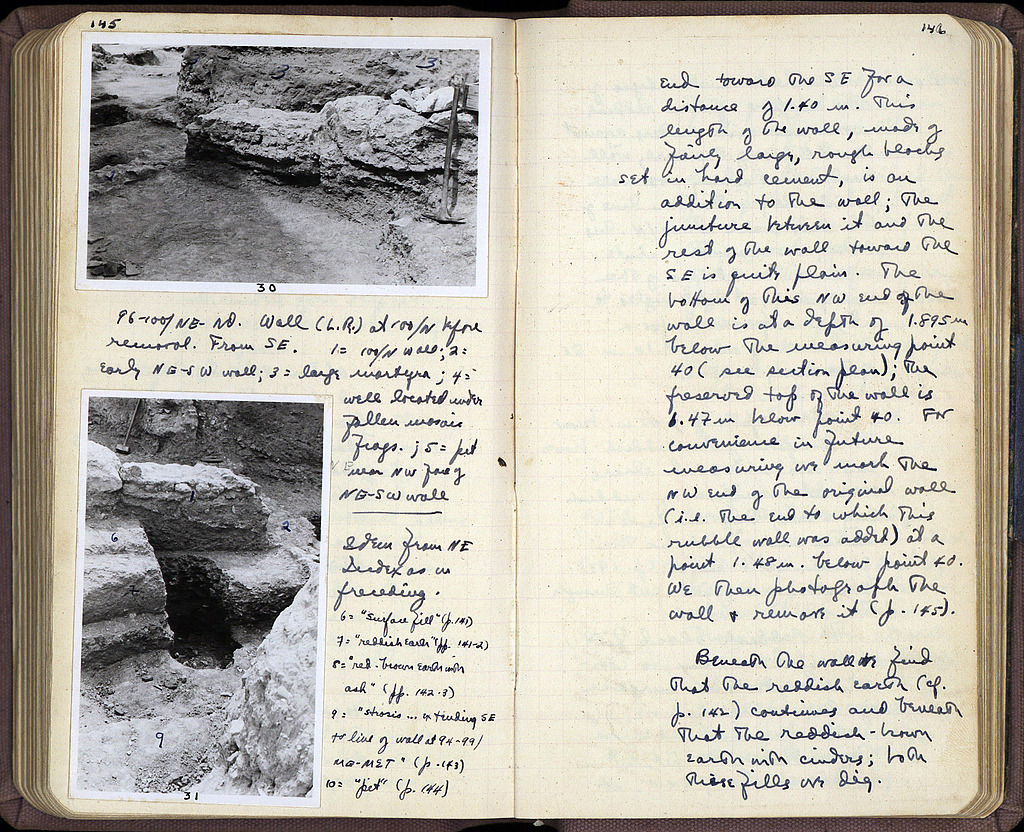 145
3
3
4
30
96-100/NE-NO. Wall (L.R.) at 100/N before
removal. From SE. 1= 100/N wall; 2=
Early NE-SW wall; 3= large martyra; 4=
well located under
fallen mosaic
frags.; 5= pit
near NW face of
NE-SW wall
1
2
6
7
9
31
Idem from NE
Index as in
preceding.
6= "surface fill" (p. 141)
7= "reddish earth" (pp. 141-2)
8= "red-brown earth with
ash" (pp. 142-3)
9= "strosis ... extending SE
to line of wall at 94-99/
(p. 143)
10= "pit" (p. 144)
146
end toward the SE for a
distance of 1.40 m. This
length of the wall, made of
fairly large, rough blocks
set in hard cement, is an
addition to the wall; the
juncture between it and the
rest of the wall toward the
SE is quite plain. The
bottom of this NW end of the
wall is at a depth of 1.895 m
below the measuring point
40 (see section plan); the
preserved top of the wall is
0.47 m below point 40. For
convenience in future
measuring we mark the
NW end of the original wall
(i.e. the end to which this
rubble wall was added) at a
point 1.48 m. below point 40.
We then photograph the
wall & remove it (p. 145).
Beneath the wall we find
that the reddish earth (cf.
p. 142) continues and beneath
that the reddish-brown
earth with cinders; both
these fills we dig.